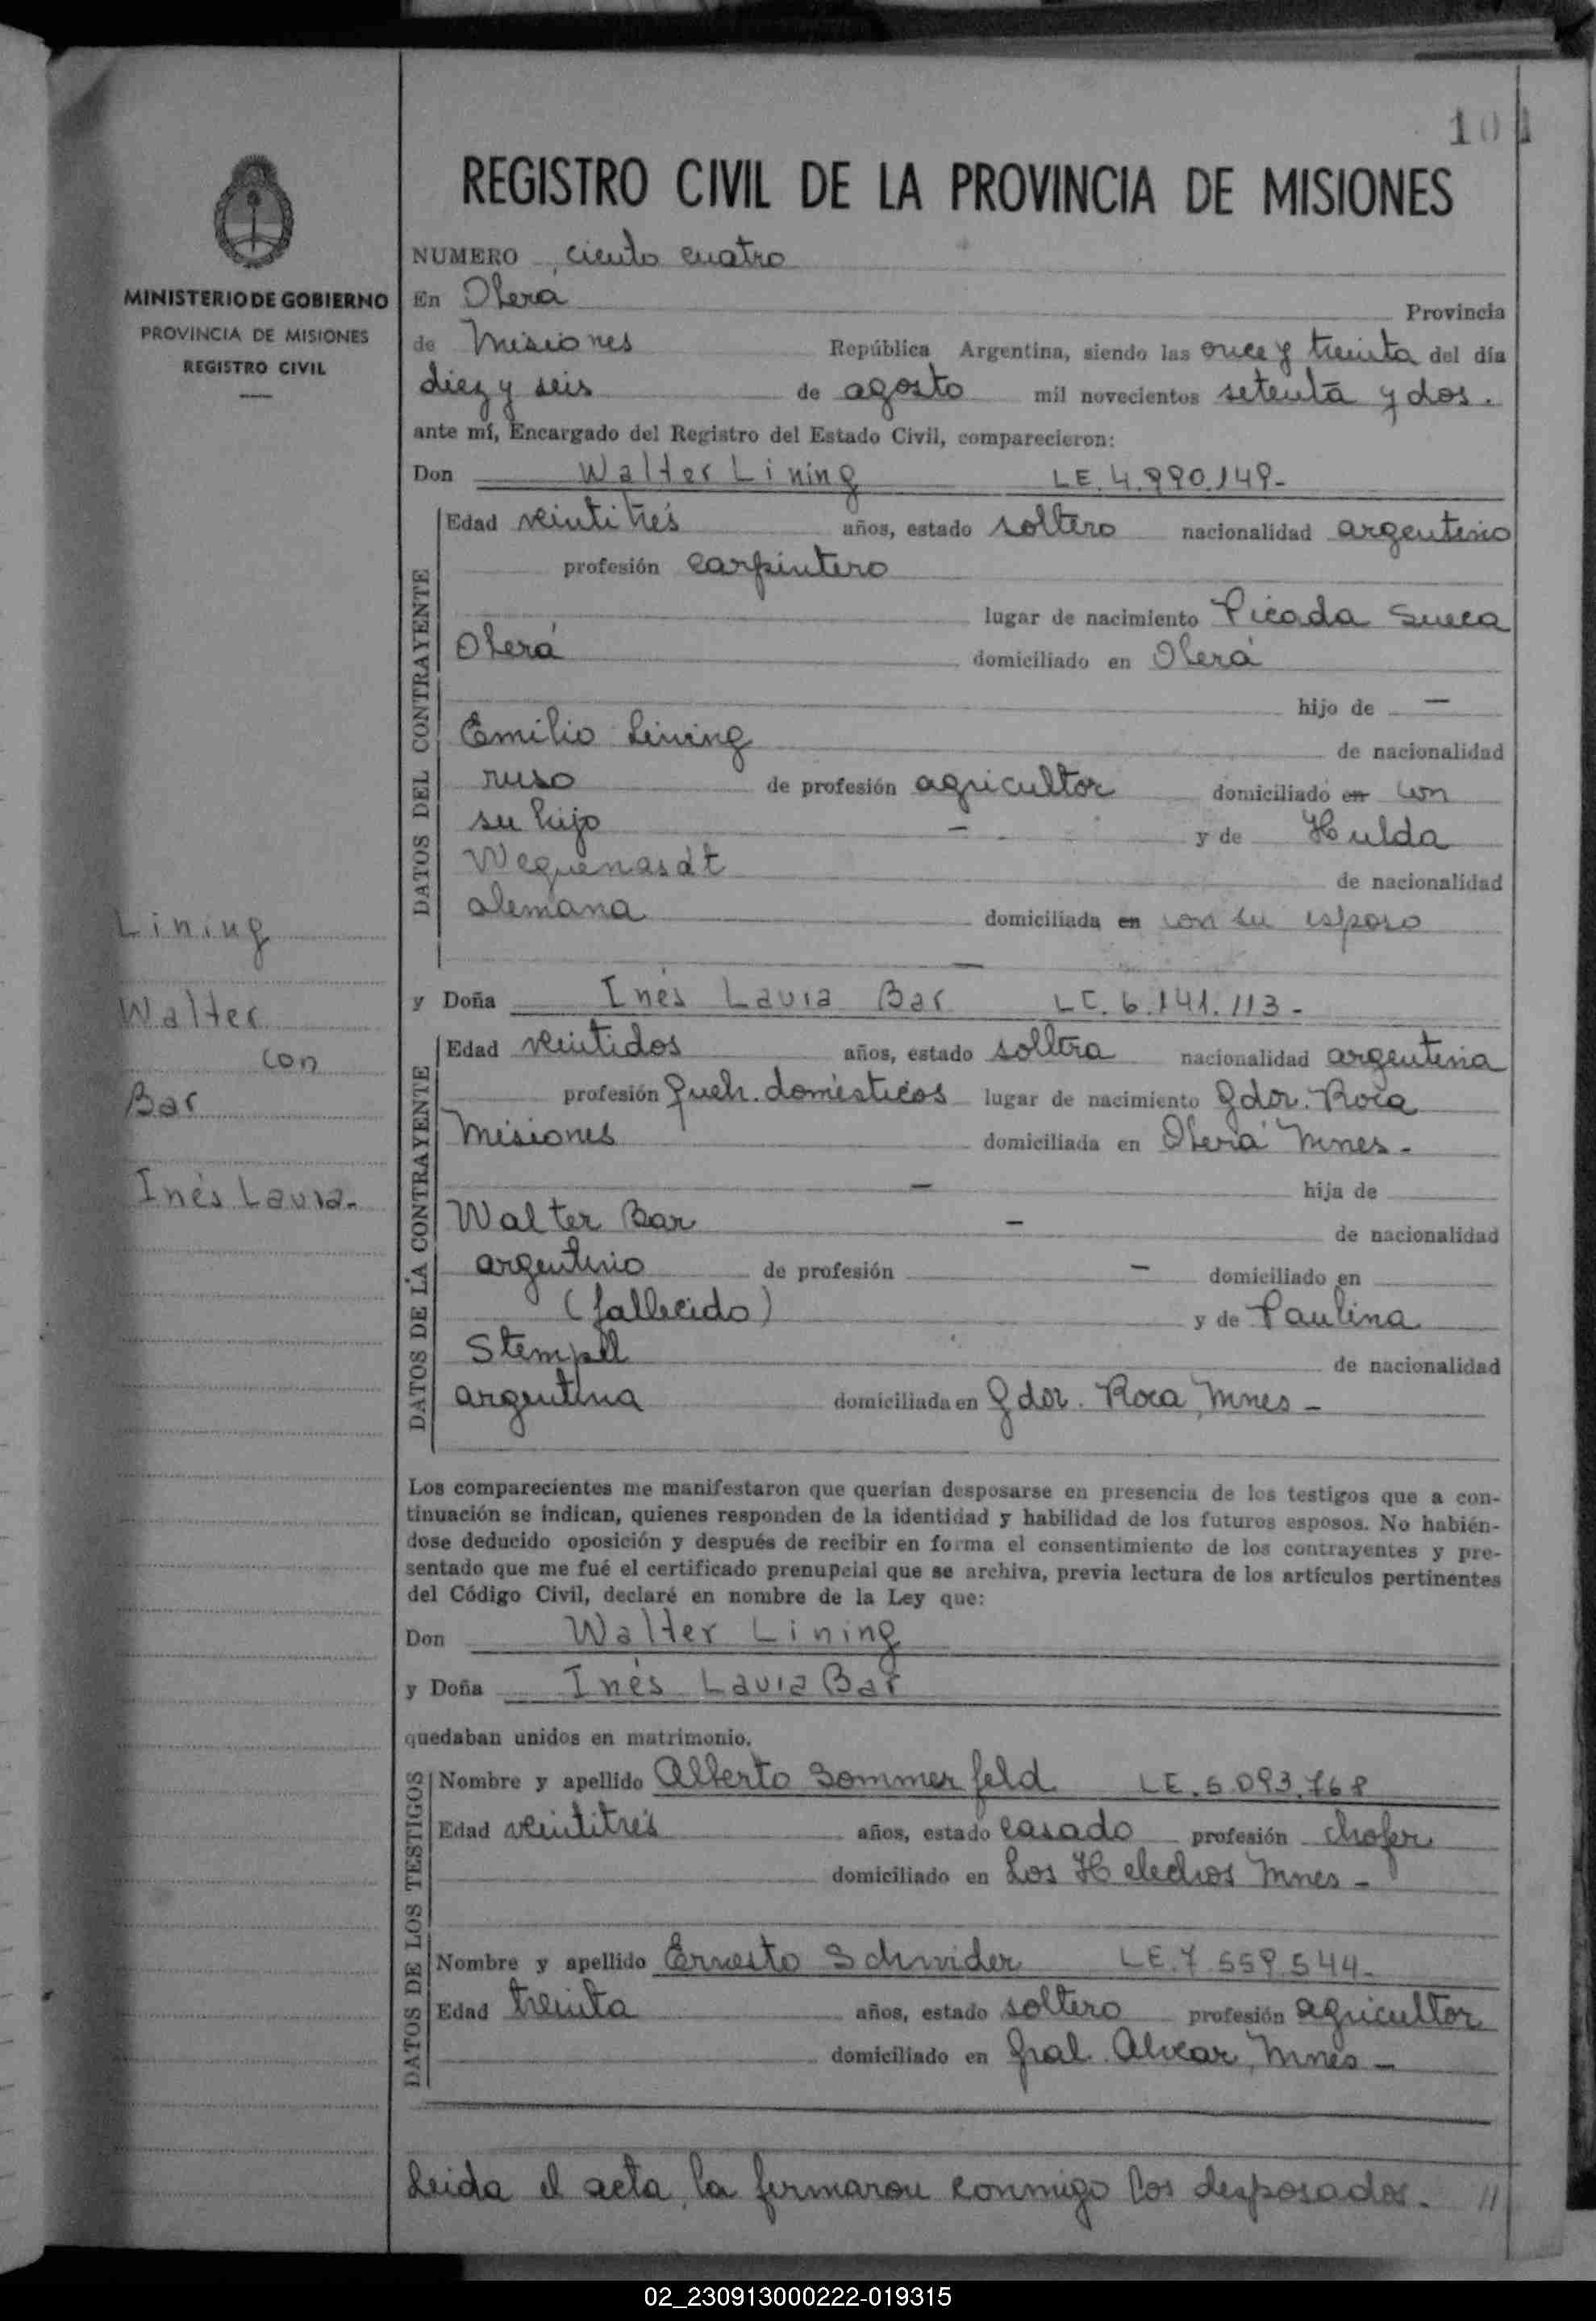 101
REGISTRO CIVIL DE LA PROVINCIA DE MISIONES
MINISTERIO DE GOBIERNO
PROVINCIA DE MISIONES
REGISTRO CIVIL
NUMERO ciento cuatro
En Oberá Provincia
de Misiones República Argentina, siendo las once y treinta del día
diez y seis de agosto mil novecientos setenta y dos.
ante mí, Encargado del Registro del Estado Civil, comparecieron:
Don Walter Lining LE. 4.990.149-
DATOS DEL CONTRAYENTE
Edad veintitrés años, estado soltero nacionalidad argentino
profesión carpintero
lugar de nacimiento Picada Sueca
Oberá domiciliado en Oberá
hijo de —
Emilio Lining de nacionalidad
ruso de profesión agricultor domiciliado en con
su hijo - y de Hulda
Weguenasdt de nacionalidad
alemana domiciliada en con su esposo
—
Lining
Walter
con
Bar
Inés Lavia-
y Doña Inés Lavia Bar LC. 6.141.113-
DATOS DE LA CONTRAYENTE
Edad veintidos años, estado soltera nacionalidad argentina
profesión queh. domésticos lugar de nacimiento Gdor. Roca
Misiones domiciliada en Oberá Mnes-
— hija de
Walter Bar — de nacionalidad
argentino de profesión — domiciliado en
(fallecido) y de Paulina
Stempll de nacionalidad
argentina domiciliada en Gdor. Roca, Mnes-
Los comparecientes me manifestaron que querían desposarse en presencia de los testigos que a con-
tinuación se indican, quienes responden de la identidad y habilidad de los futuros esposos. No habién-
dose deducido oposición y después de recibir en forma el consentimiento de los contrayentes y pre-
sentado que me fué el certificado prenupcial que se archiva, previa lectura de los artículos pertinentes
del Código Civil, declaré en nombre de la Ley que:
Don Walter Lining
y Doña Inés Lavia Bar
quedaban unidos en matrimonio.
DATOS DE LOS TESTIGOS
Nombre y apellido Alberto Sommerfeld LE. 5.093.768
Edad veintitrés años, estado casado profesión chofer
domiciliado en Los Helechos Mnes-
Nombre y apellido Ernesto Schnider LE. 7.559.544-
Edad treinta años, estado soltero profesión agricultor
domiciliado en Gral. Alvear, Mnes-
Leida el acta, la firmaron conmigo los desposados. //
02_230913000222-019315